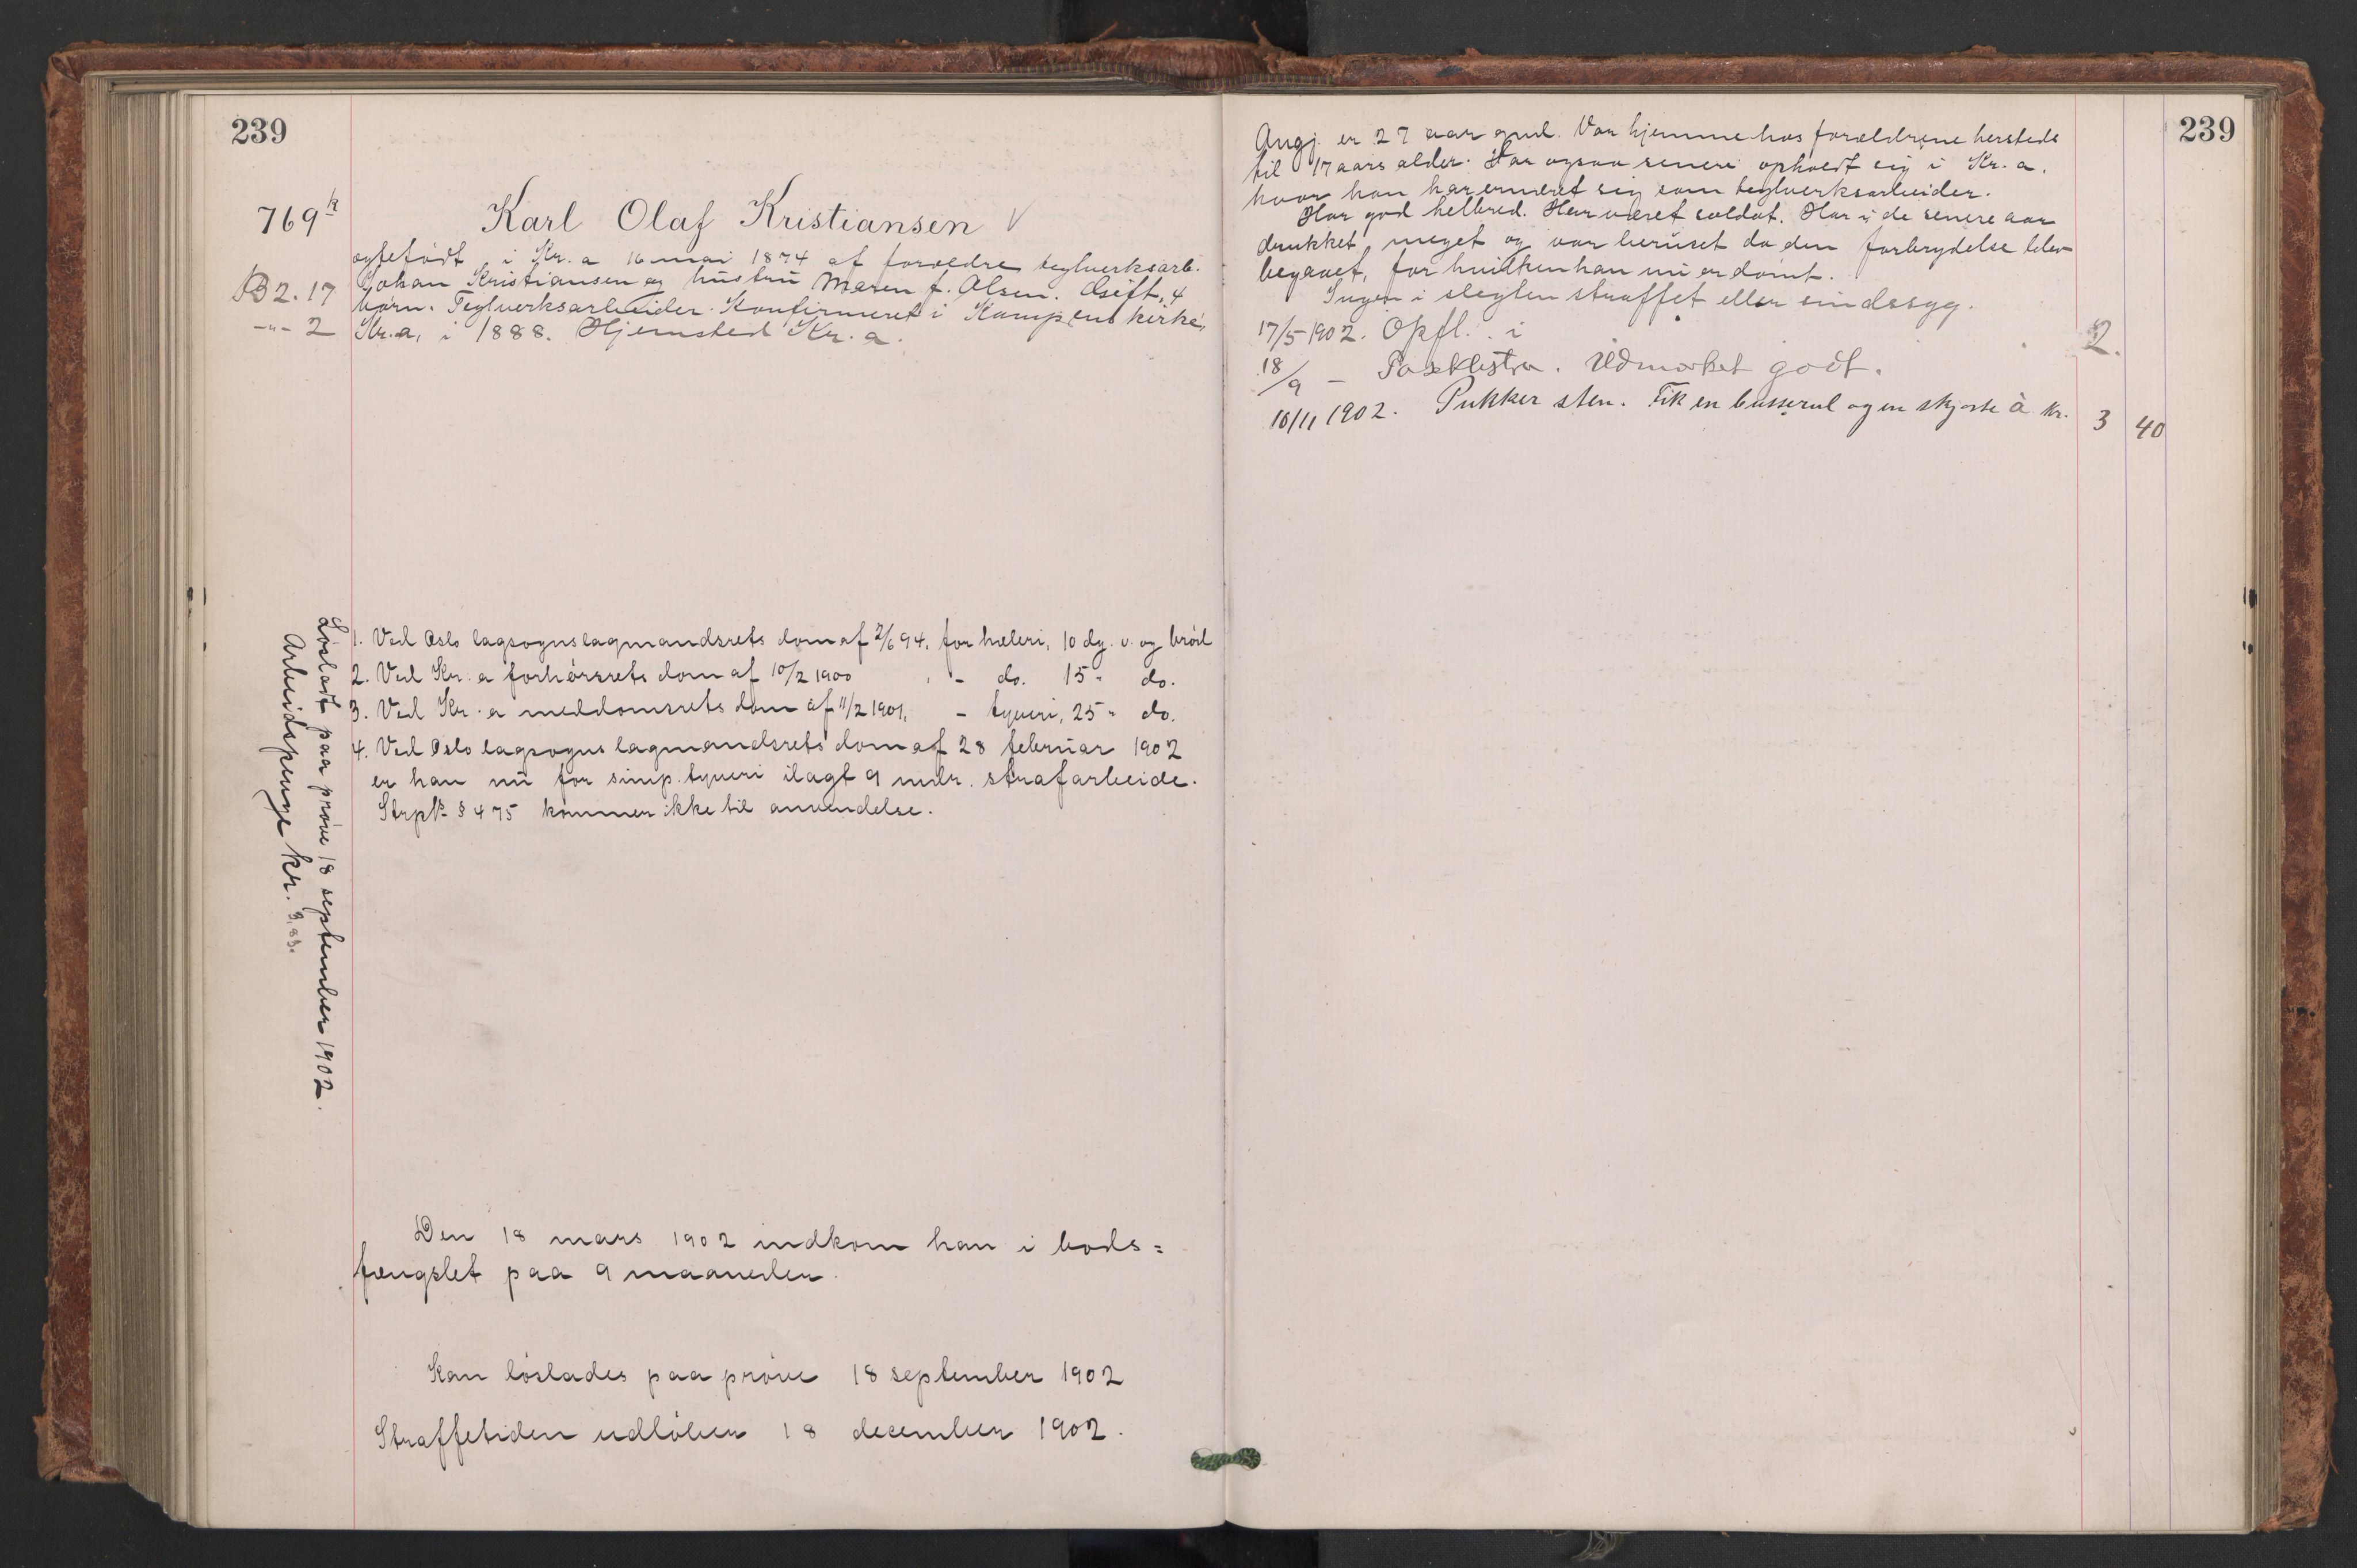 239
769 k
Karl Olaf Kristiansen V
ægtefødt i Kr.a 16 mai 1874 af forældre teglverksarb.
Johan Kristiansen og hustru Maren f. Olsen. Gift, 4
børn. Teglverksarbeider. Konfirmeret i Kampens kirke,
Kr.a, i 1888. Hjemsted Kr.a.
B 2. 17
-"- 2
1. Ved Oslo lagsogns lagmandsrets dom af 2/6 94, for hæleri, 10 dg. v. og brød
2. Ved Kr.a forhørsrets dom af 10/2 1900 - do. 15 " do.
3. Ved Kr.a meddomsrets dom af 11/2 1901, - tyveri, 25 " do.
4. Ved Oslo lagsogns lagmandsrets dom af 28 februar 1902
er han nu for simp. tyveri ilagt 9 mdr. strafarbeide.
Strpl. § 475 kommer ikke til anvendelse.
Løsladt paa prøve 18 september 1902.
Arbeidspenge kr. 3,83.
Den 18 mars 1902 indkom han i bods=
fængslet paa 9 maaneder.
Kan løslades paa prøve 18 september 1902
Straffetiden udløber 18 december 1902.
239
Angj. er 27 aar gml. Var hjemme hos forældrene hersteds
til 17 aars alder. Har ogsaa senere opholdt sig i Kr.a.
hvor han har ernæret sig som teglverksarbeider.
Har god helbred. Har været soldat. Har i de senere aar
drukket meget og var beruset da den forbrydelse blev
begaaet, for hvilken han nu er dømt.
Ingen i slegten straffet eller sindssyg.
17/5 1902. Opfl. i 2.
18/9 - Udmærket godt.
10/11 1902. Pukker sten. Fik en busserul og en skjorte à kr. 3 40